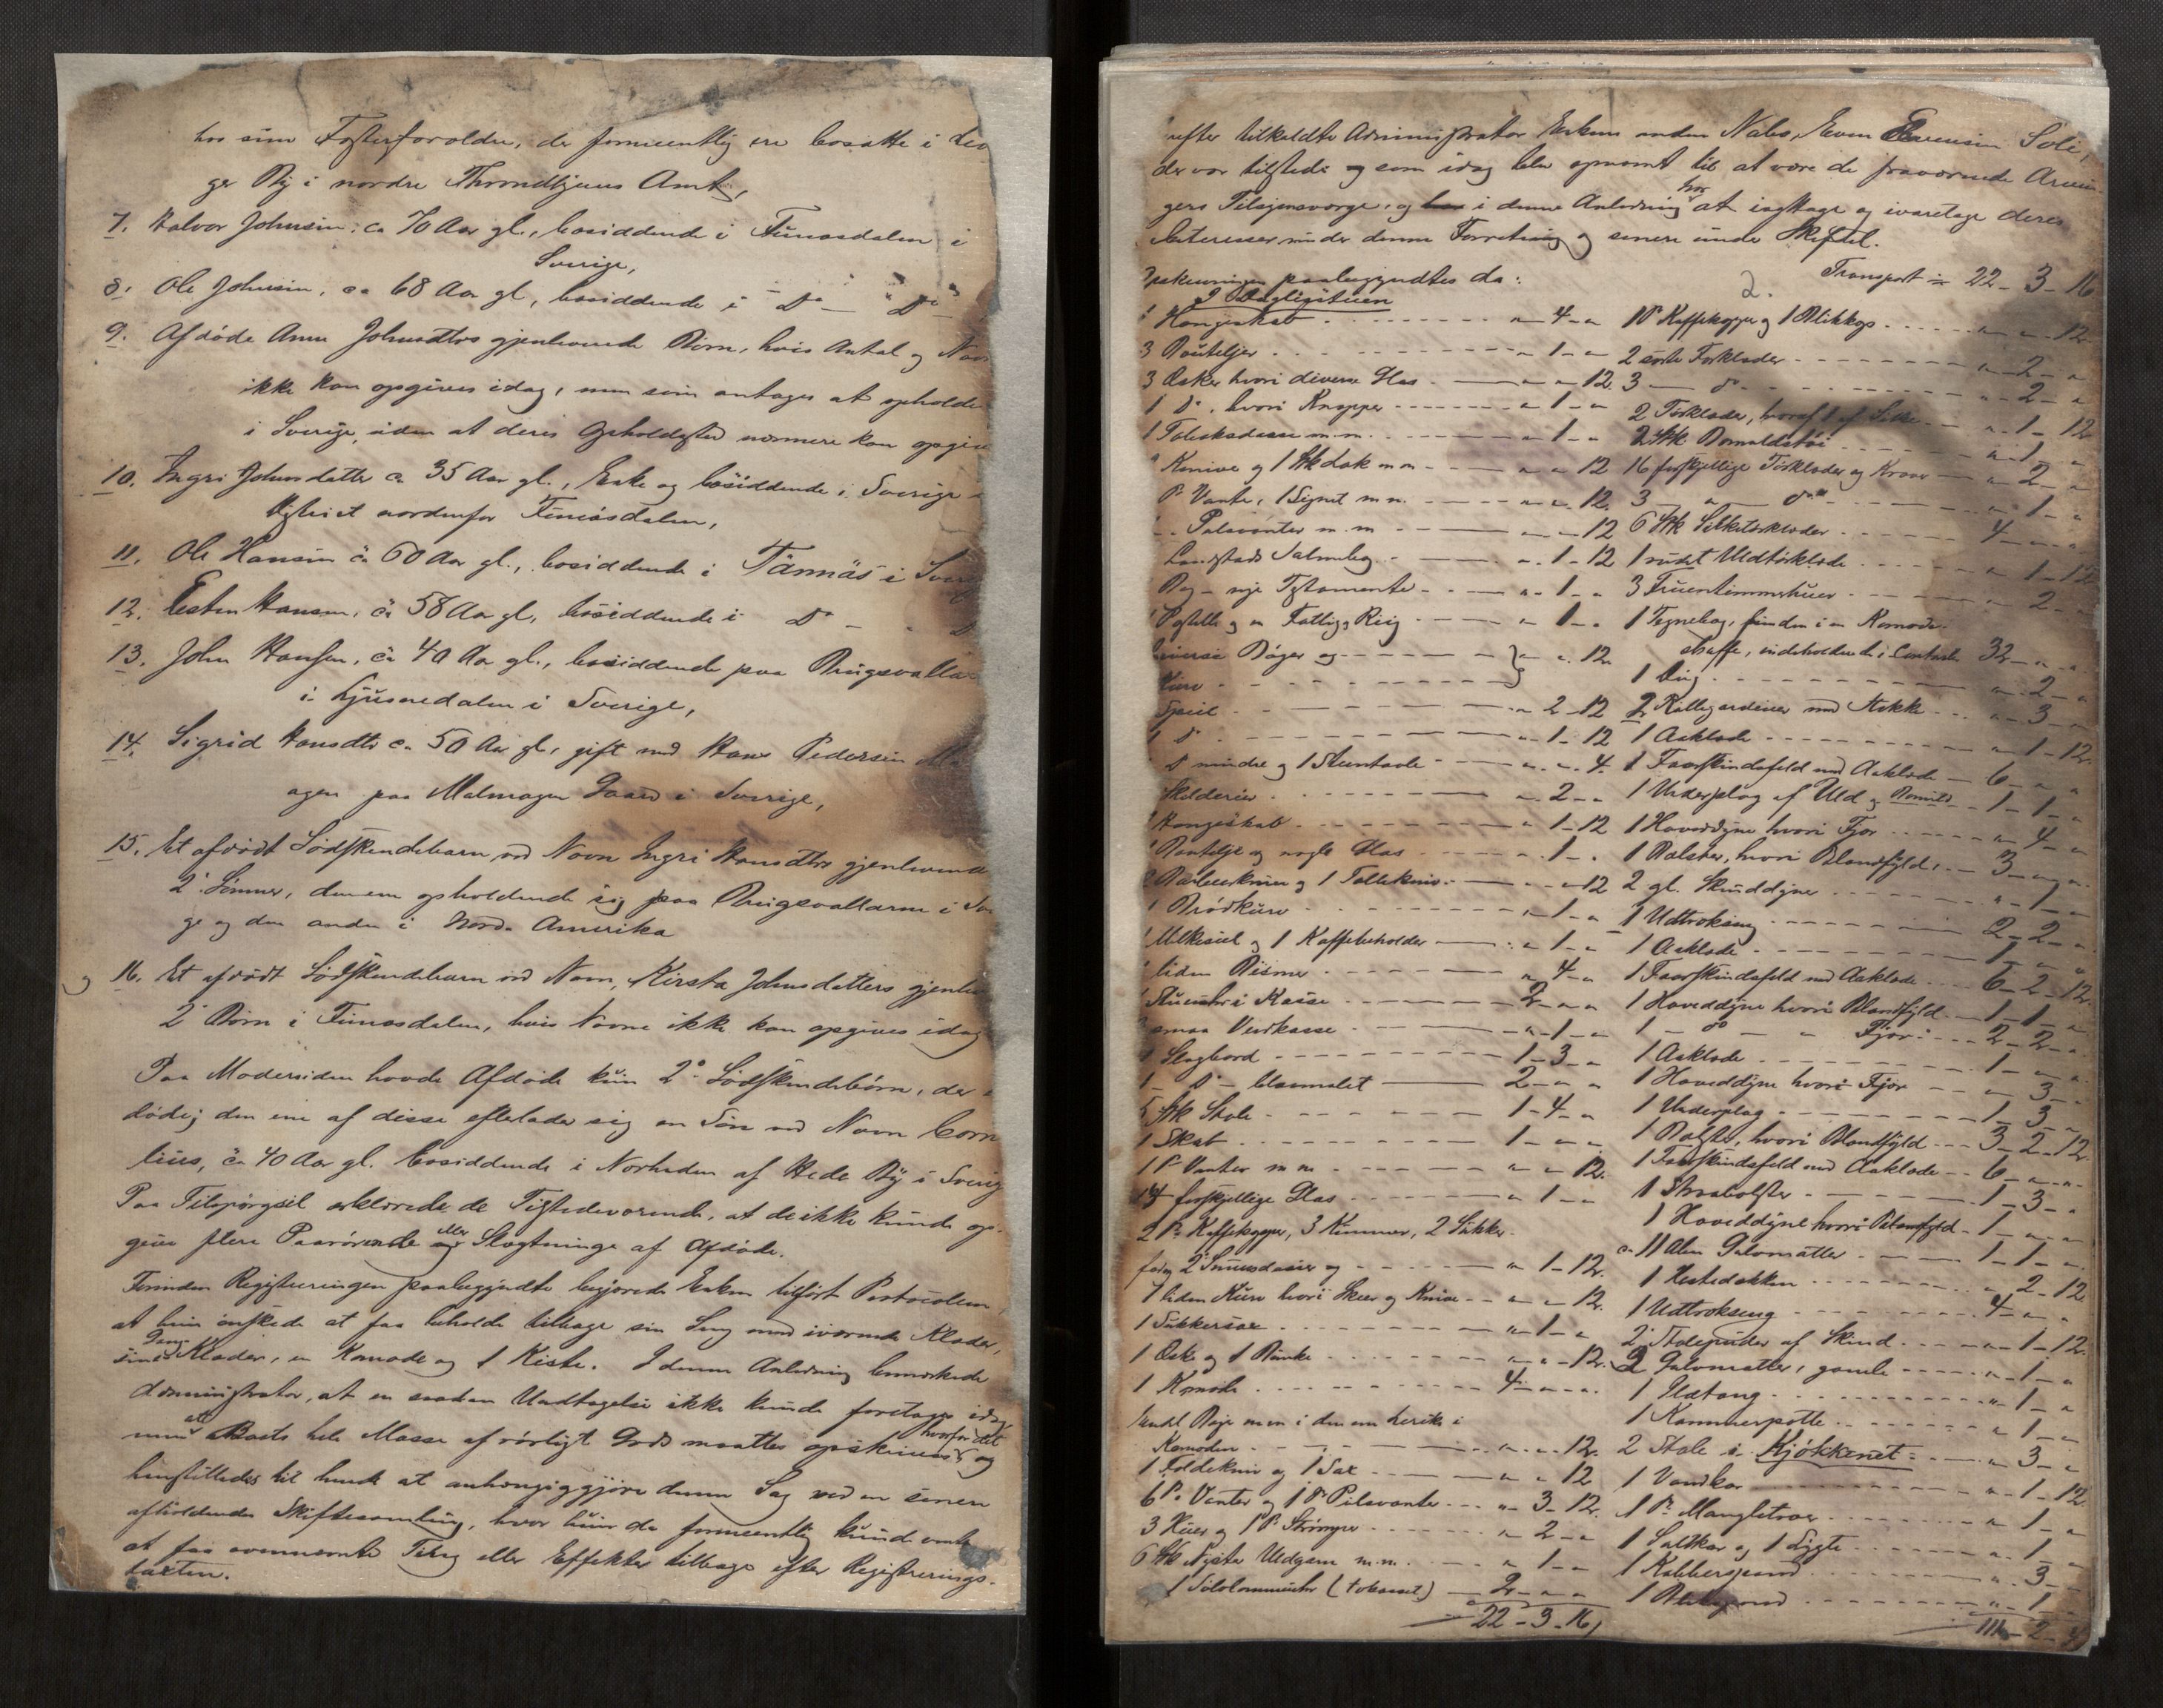 hos sine Fosterforældre, der formeentlig ere bosatte i Lev
ger By i nordre Throndhjems Amt,
7. Halvor Johnsen, ca 70 Aar gl., bosiddende i Funæsdalen i
Sverige,
8. Ole Johnsen, ca 68 Aar gl, bosiddende i Do — Do
9. Afdøde Anne Johnsdtrs gjenlevende Børn, hvis Antal og Navn
ikke kan opgives idag, men som antages at opholde
i Sverige, uden at deres Opholdssted nærmere kan opgive
10. Ingri Johnsdatter ca 35 Aar gl., Enke og bosiddende i Sverige
nordenfor Funæsdalen,
11. Ole Hansen ca 60 Aar gl., bosiddende i Tännäs i Sverig
12. Esten Hansen, ca 58 Aar gl, bosiddende i Do — D
13. John Hansen, ca 40 Aar gl., bosiddende paa Brugsvallar
i Ljusnedalen i Sverige,
14. Sigrid Hansdtr ca 50 Aar gl, gift med Hans Pedersen
agen paa Malmagen Gaard i Sverige,
15. Et afdødt Sødskendebarn ved Navn Ingri Hansdtrs gjenlevende
2 Sønner, den ene opholdende sig paa Brugsvallarne i Sver
ge og den anden i Nord. Amerika
og 16. Et afdødt Sødskendebarn ved Navn, Kirsta Johnsdatters gjenlev
2 Børn i Funæsdalen, hvis Navne ikke kan opgives idag
Paa Modersiden havde Afdøde kun 2 Sødskendebørn, der
døde; den ene af disse efterlader sig en Søn ved Navn Corn
lius, ca 40 Aar gl. bosiddende i Norheden af Hede By i Sverig
Paa Tilspørgsel erklærede de Tilstedeværende, at de ikke kunde op-
give flere Paarørende eller Slægtninge af Afdøde.
Forinden Registreringen paabegyndte begjærede Enken tilført Protocolen
at hun ønskede at faa beholde tilbage sin Seng med iværende Klæder,
sine Gang Klæder, en Komode og 1 Kiste. I denne Anledning bemærkede
Administrator, at en saadan Undtagelse ikke kunde foretages idag
men at Boets hele Masse af rørligt Gods maatte opskrives, hvorfor det og
henstilledes til hende at anhængiggjøre denne Sag ved en senere
afholdendes Skiftesamling, hvor hun da formeentlig kunde
at faa ovennævnte Tøi eller Effekter tilbage efter Registrerings-
taxten.
efter tilkaldte Administrator Enkens anden Nabo, Even Evensen Soli,
der var tilstede og som idag blev opnævnt til at være de fraværende Arvin-
gers Tilsynsværge, og i denne Anledning har at iagttage og ivaretage deres
Interesser under denne Forretning og senere under Skiftet.
Opskrivningen paabegyndtes da:
I Dagligstuen
1 Hængeskab - - - „ 4 - „
3 Bouteljer - - - „ 1 - „
3 Æsker hvori diverse Glas - - - „ „ 12
1 Do, hvori Knapper - - - „ 1 - „
1 Tobaksdaase m.m. - - - „ 1 - „
Knive og 1 Stk Lak m m - - - „ „ 12
Pr Vanter, 1 Signet m m. - - - „ „ 12
Pulsvanter m. m - - - „ „ 12
Landstads Salmebog - - - „ 1 - 12
Bog - nye Testamente - - - „ 1 - „
1 Postille og en - - - „ 1 - „
diverse Bøger og - - - } „ „ 12
Kurv - - -
Speil - - - „ 2 - 12
1 Do - - - „ 1 - 12
1 Do mindre og 1 Steentavle - - - „ „ 4
Skilderier - - - „ 2 - „
Hængeskab - - - „ 1 - 12
1 Bouteille og nogle Glas - - - „ 1 - „
2 Barbeerknive og 1 Tollekniv - - - „ „ 12
1 Brødkurv - - - „ 1 - „
1 Melkesiel og 1 Kaffebeholder - - - „ 1 - „
1 liden Bismer - - - „ 4 - „
1 Stueuhr i Kasse - - - 2 - „ - „
smaa Vedkasse - - - „ 1 - „
1 Slagbord - - - 1 - 3 - „
1 - Do - blaamalet - - - 2 - „ - „
5 Stk Stole - - - 1 - 4 - „
1 Skab - - - 1 - „ - „
1 Pr Vanter m m - - - „ „ 12
14 forskjellige Glas - - - „ 1 - „
2 Pr Kaffekopper, 3 Kummer, 2 Sukker-
fade 2 Snusdaaser og - - - „ 1 - 12
1 liden Kurv hvori Skeer og Knive - - - „ „ 12
1 Sukkersax - - - „ 1 - „
1 Æske og 1 Bænke - - - „ „ 12
1 Komode - - - 4 - „ - „
Endel Bøger m m i den ene
Komoden - - - „ „ 12
1 Foldekniv og 1 Sax - - - „ „ 12
6 Pr Vanter og 1 Pr Pulsvanter - - - „ 3 - 12
3 Huer og 1 Pr Strømper - - - „ 2 - „
6 Stk Nøster Uldgarn m.m. - - - „ 1 - „
1 Sølvlommeuhr - - - 2 - „ - „
22 - 3 - 16
2.
Transport = 22 - 3 - 16
1 Pr Kaffekopper og 1 Blikkop - - - „ „ 12
2 sorte Forklæder - - - „ 2 - „
3 — do - - - „ 2 - „
2 Tørklæder, hvoraf 1 af Silke - - - „ 1 - 12
2 Stk Bomuldstøi - - - „ 1 - „
16 forskjellige Tørklæder og Kraver - - - „ 2 - „
3 — „ — do - - - „ 1 - „
6 Stk Silketørklæder - - - 4 - „ - „
1 rudet Uldtørklæde - - - „ 1 - 12
3 Fruentimmerhuer - - - „ 2 - „
1 Tegnebog, funden i en Komode-
skuffe, indeholdende i Contanter 32 - „ - „
1 Ring - - - „ 2 - „
2 Rullegardiner med Stokke - - - „ 3 - „
1 Aaklæde - - - „ 1 - 12
1 Faarskindsfeld med Aaklæde - - - 6 - „ - „
1 Underplag af Uld og Bomuld - - - 1 - 1 - „
1 Hoveddyne hvori Fjær - - - „ 4 - „
1 Bolster, hvori Blandfyld - - - 3 - „ - „
2 gl. Skinddyner - - - „ 1 - „
1 Udtrækseng - - - 2 - 2 - „
1 Aaklæde - - - 1 - „ - „
1 Faarskindsfeld med Aaklæde - - - 6 - 2 - 12
1 Hoveddyne hvori Blandfyld - - - 1 - 1 - „
1 — do — „ Fjær - - - 2 - 2 - „
1 Aaklæde - - - 1 - „ - „
1 Hoveddyne hvori Fjær - - - „ 3 - „
1 Underplag - - - 1 - 3 - „
1 Bolster, hvori Blandfyld - - - 3 - 2 - 12
1 Faarskindsfeld med Aaklæde - - - 6 - „ - „
1 Straabolster - - - 1 - 3 - „
1 Hoveddyne hvori Blandfyld - 1 - „ - „
ca 11 Alen Gulvmatter - - - 1 - 1 - „
1 Hestedækken - - - „ 2 - 12
1 Udtrækseng - - - 4 - „ - „
2 Stolepuder af Skind - - - „ 1 - 12
2 Gulvmatter, gamle - - - „ 1 - „
1 Ildtang - - - „ 1 - „
1 Kammerpotte - - - „ 1 - „
2 Stole i Kjøkkenet - - - „ 3 - „
1 Vandkar - - - „ 1 - 12
1 Pr Mangletræer - - - „ 1 - „
1 Saltkar og 1 Løgte - - - „ 1 - „
1 Kobberspand - - - „ 3 - „
1 Blikspand - - - „ 1 - „
111 - 2 - 4